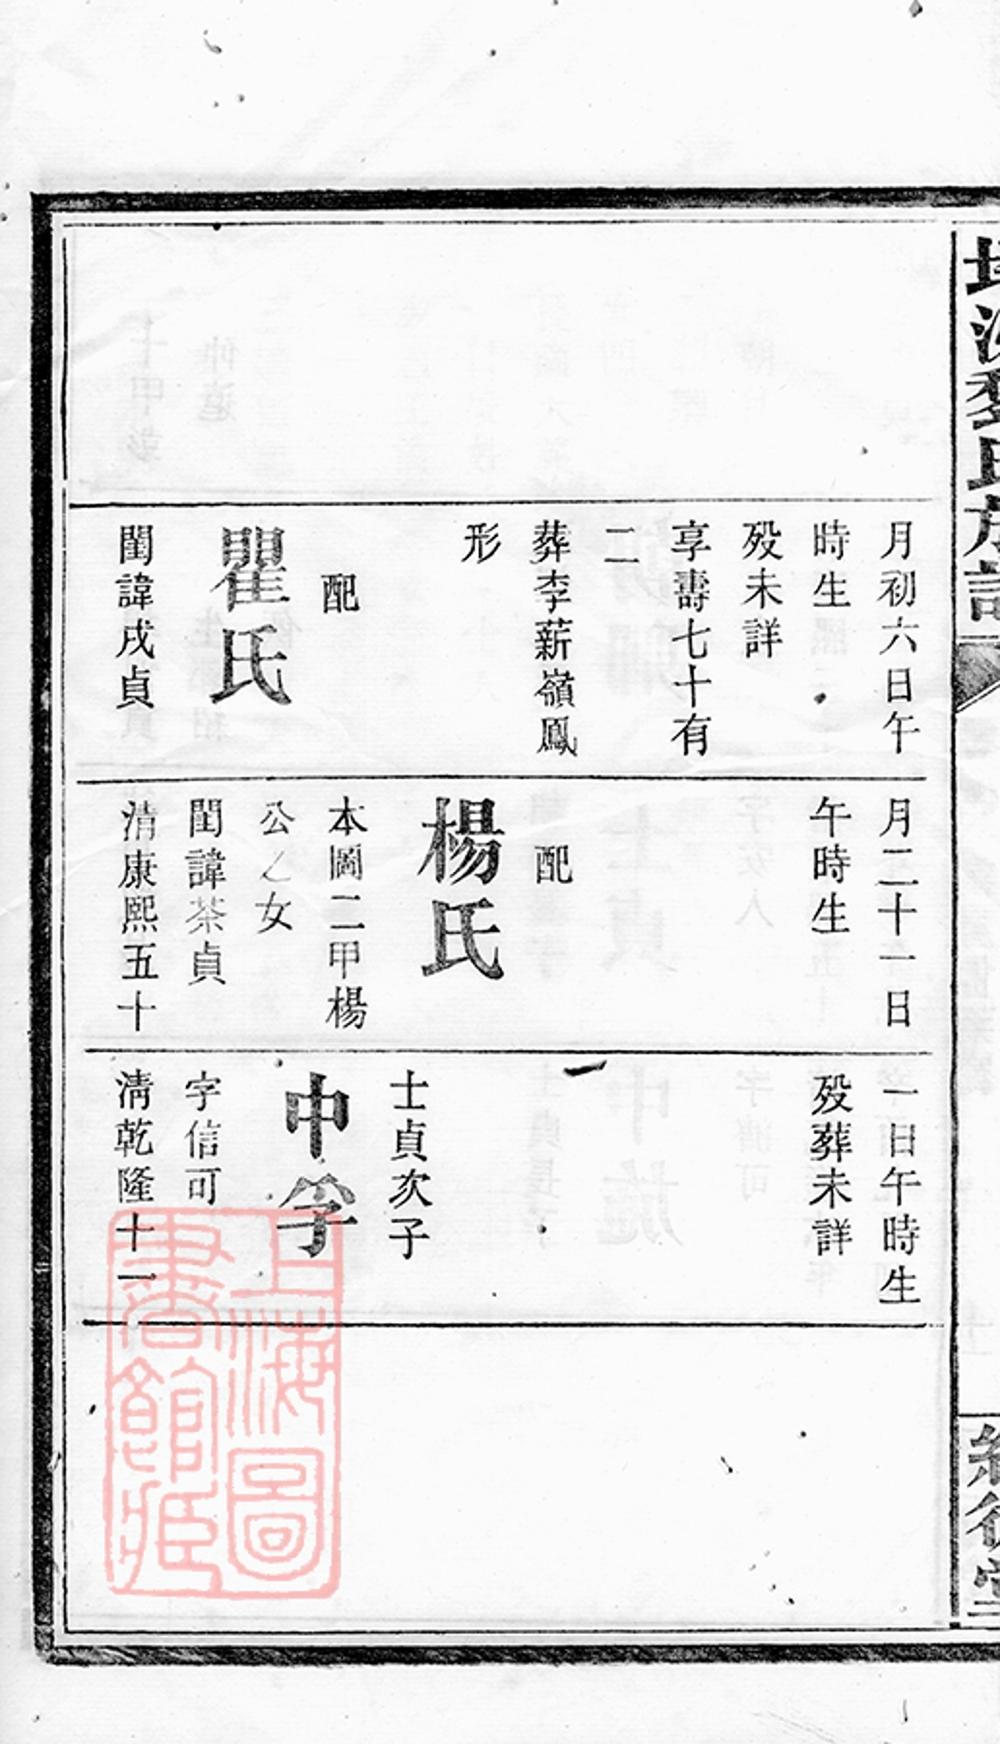 月初六日午
時生
殁未詳
享壽七十有
二
葬李薪嶺鳳
形
配
瞿氏
閨諱戌貞
月二十一日
午時生
配
楊氏
本圖二甲楊
公之女
閨諱茶貞
清康熙五十
一日午時生
殁葬未詳
士貞次子
中孚
字信可
清乾隆十一
上海圖
書館藏